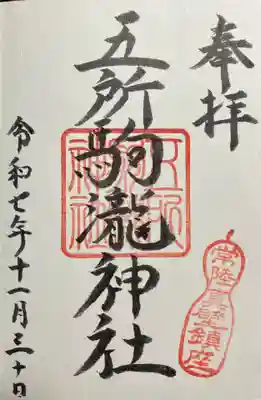 奉拝
常陸真壁鎮座
五所駒瀧神社
令和七年十一月三十日